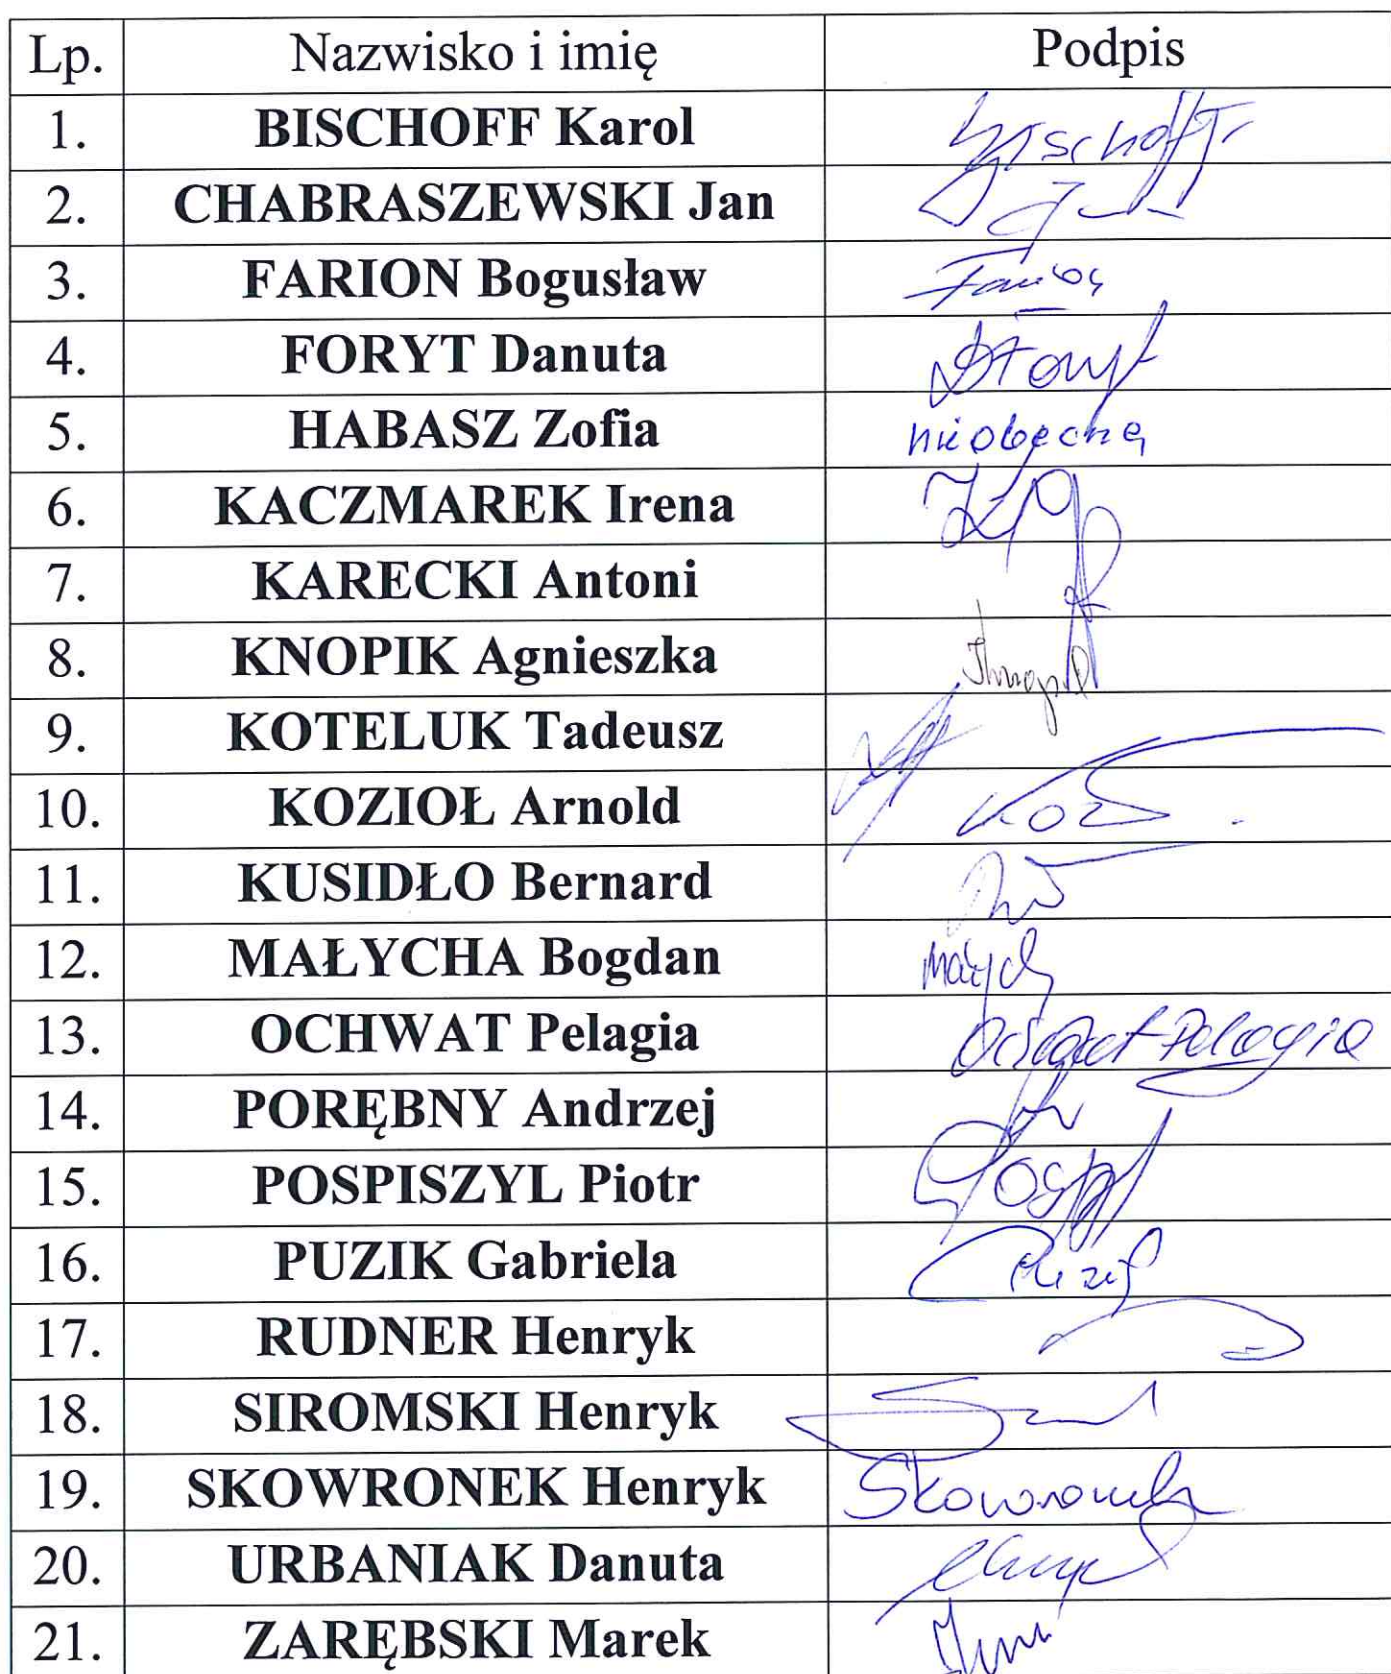 Lp. Nazwisko i imię Podpis
1. BISCHOFF Karol Bischoff
2. CHABRASZEWSKI Jan
3. FARION Bogusław
4. FORYT Danuta
5. HABASZ Zofia nieobecna
6. KACZMAREK Irena
7. KARECKI Antoni
8. KNOPIK Agnieszka
9. KOTELUK Tadeusz
10. KOZIOŁ Arnold
11. KUSIDŁO Bernard
12. MAŁYCHA Bogdan
13. OCHWAT Pelagia Ochwat Pelagia
14. PORĘBNY Andrzej
15. POSPISZYL Piotr
16. PUZIK Gabriela
17. RUDNER Henryk
18. SIROMSKI Henryk
19. SKOWRONEK Henryk Skowronek
20. URBANIAK Danuta
21. ZARĘBSKI Marek